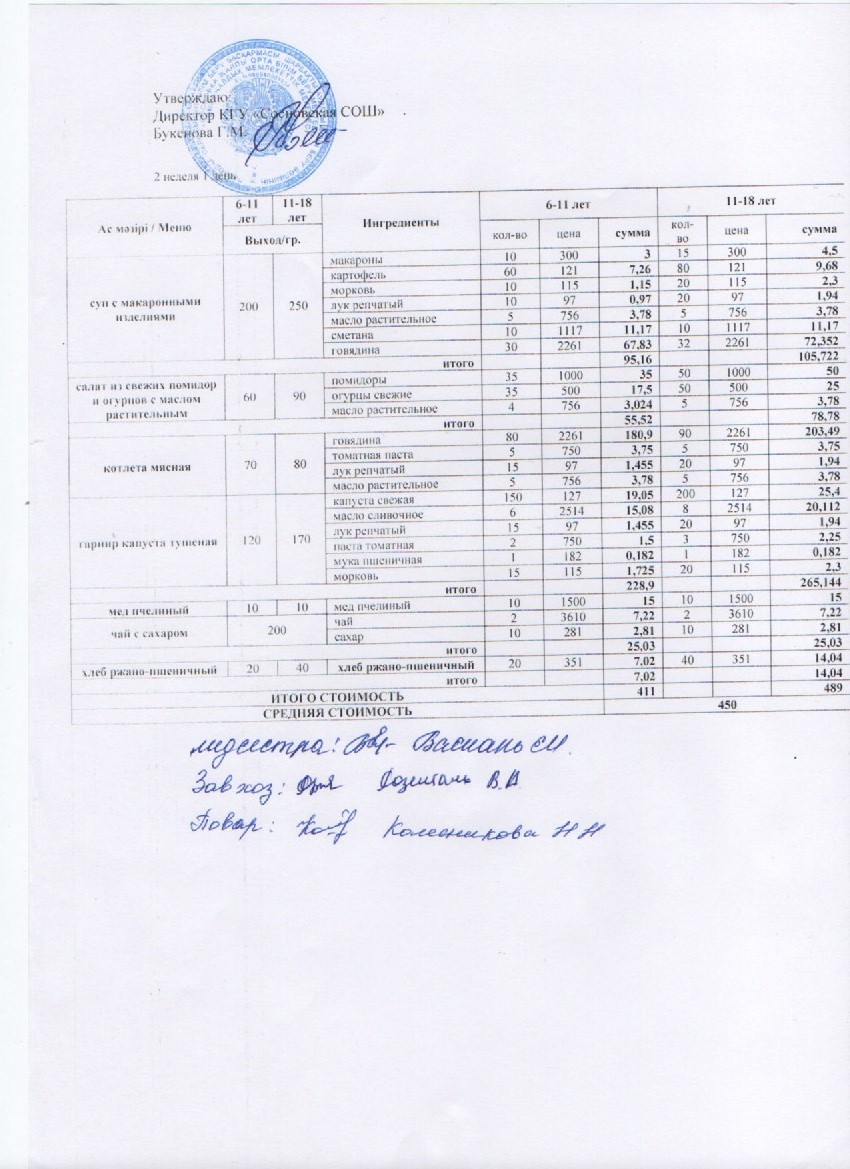 Утверждаю:
Директор КГУ «Сосновская СОШ»
Букенова Г.М.
2 неделя 1 день
Ас мәзірі / Меню 6-11 лет 11-18 лет Ингредиенты 6-11 лет 11-18 лет
Выход/гр. кол-во цена сумма кол-во цена сумма
суп с макаронными изделиями 200 250 макароны 10 300 3 15 300 4,5
картофель 60 121 7,26 80 121 9,68
морковь 10 115 1,15 20 115 2,3
лук репчатый 10 97 0,97 20 97 1,94
масло растительное 5 756 3,78 5 756 3,78
сметана 10 1117 11,17 10 1117 11,17
говядина 30 2261 67,83 32 2261 72,352
итого 95,16 105,722
салат из свежих помидор и огурцов с маслом растительным 60 90 помидоры 35 1000 35 50 1000 50
огурцы свежие 35 500 17,5 50 500 25
масло растительное 4 756 3,024 5 756 3,78
итого 55,52 78,78
котлета мясная 70 80 говядина 80 2261 180,9 90 2261 203,49
томатная паста 5 750 3,75 5 750 3,75
лук репчатый 15 97 1,455 20 97 1,94
масло растительное 5 756 3,78 5 756 3,78
гарнир капуста тушеная 120 170 капуста свежая 150 127 19,05 200 127 25,4
масло сливочное 6 2514 15,08 8 2514 20,112
лук репчатый 15 97 1,455 20 97 1,94
паста томатная 2 750 1,5 3 750 2,25
мука пшеничная 1 182 0,182 1 182 0,182
морковь 15 115 1,725 20 115 2,3
итого 228,9 265,144
мед пчелиный 10 10 мед пчелиный 10 1500 15 10 1500 15
чай с сахаром 200 чай 2 3610 7,22 2 3610 7,22
сахар 10 281 2,81 10 281 2,81
итого 25,03 25,03
хлеб ржано-пшеничный 20 40 хлеб ржано-пшеничный 20 351 7,02 40 351 14,04
итого 7,02 14,04
ИТОГО СТОИМОСТЬ 411 489
СРЕДНЯЯ СТОИМОСТЬ 450
медсестра:
Завхоз: В.В.
Повар: Н Н